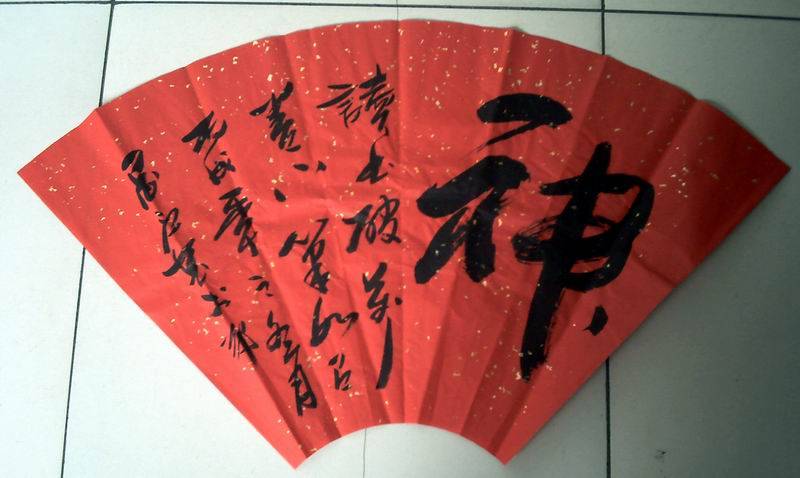 神
讀書破萬
卷下筆如有
戊戌年之冬月